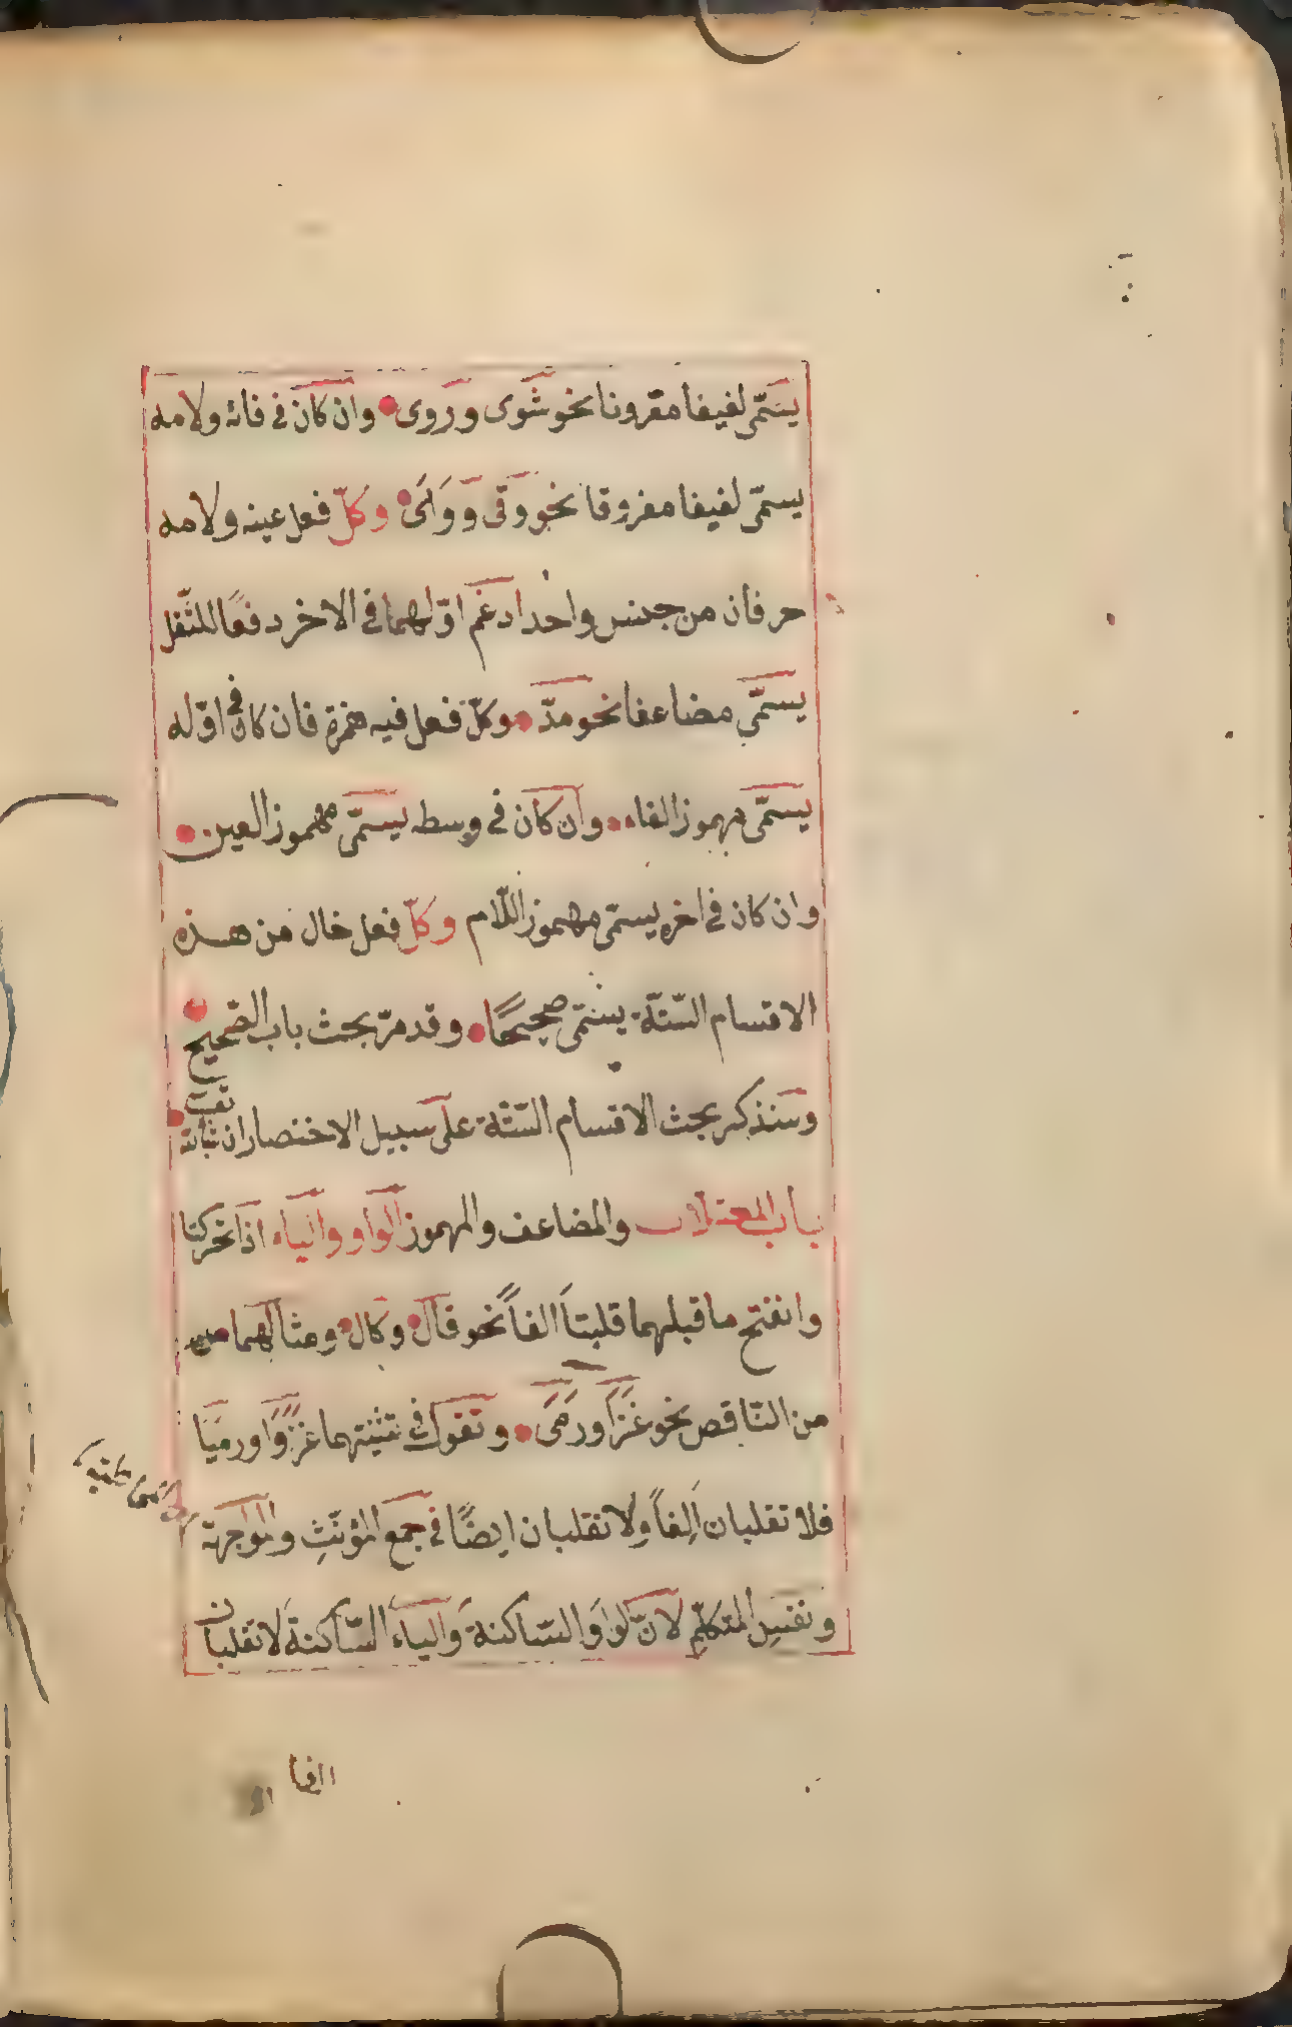 يسمّى لفيفا مقرونا نحو شوى وروى وان كان في فائه ولامه
يسمّى لفيفا مفروقا نحو وقى ووأى وكلّ فعل عينه ولامه
حرفان من جنس واحد ادغم اوّلهما في الاخر دفعًا للثّقل
يسمّى مضاعفا نحو مدّ وكلّ فعل فيه همزة فان كان في اوّله
يسمّى مهموز الفاء وان كان في وسطه يسمّى مهموز العين
وان كان في اخره يسمّى مهموز اللّام وكلّ فعل خال من هذه
الاقسام السّتّة يسمّى صحيحًا وقد مرّ بحث باب الصّحيح
وسنذكر بحث الاقسام السّتّة على سبيل الاختصار ان شاء الله تعالى
باب المعتلات والمضاعف والمهموز الواو والياء اذا تحركتا
وانفتح ما قبلهما قلبتا الفاً نحو قال وكال ومثالهما من
من النّاقص نحو غَزَا ورَمَى وتقول في تثنيتهما غزَوَا ورميَا
فلا تقلبان اَلِفاً ولا تقلبان ايضًا في جمع المؤنّثِ والمواجهة
ونفسِ المتكلّمِ لانّ الواوَ السّاكنة وَالياءَ السّاكنةَ لا تقلبان
الفا